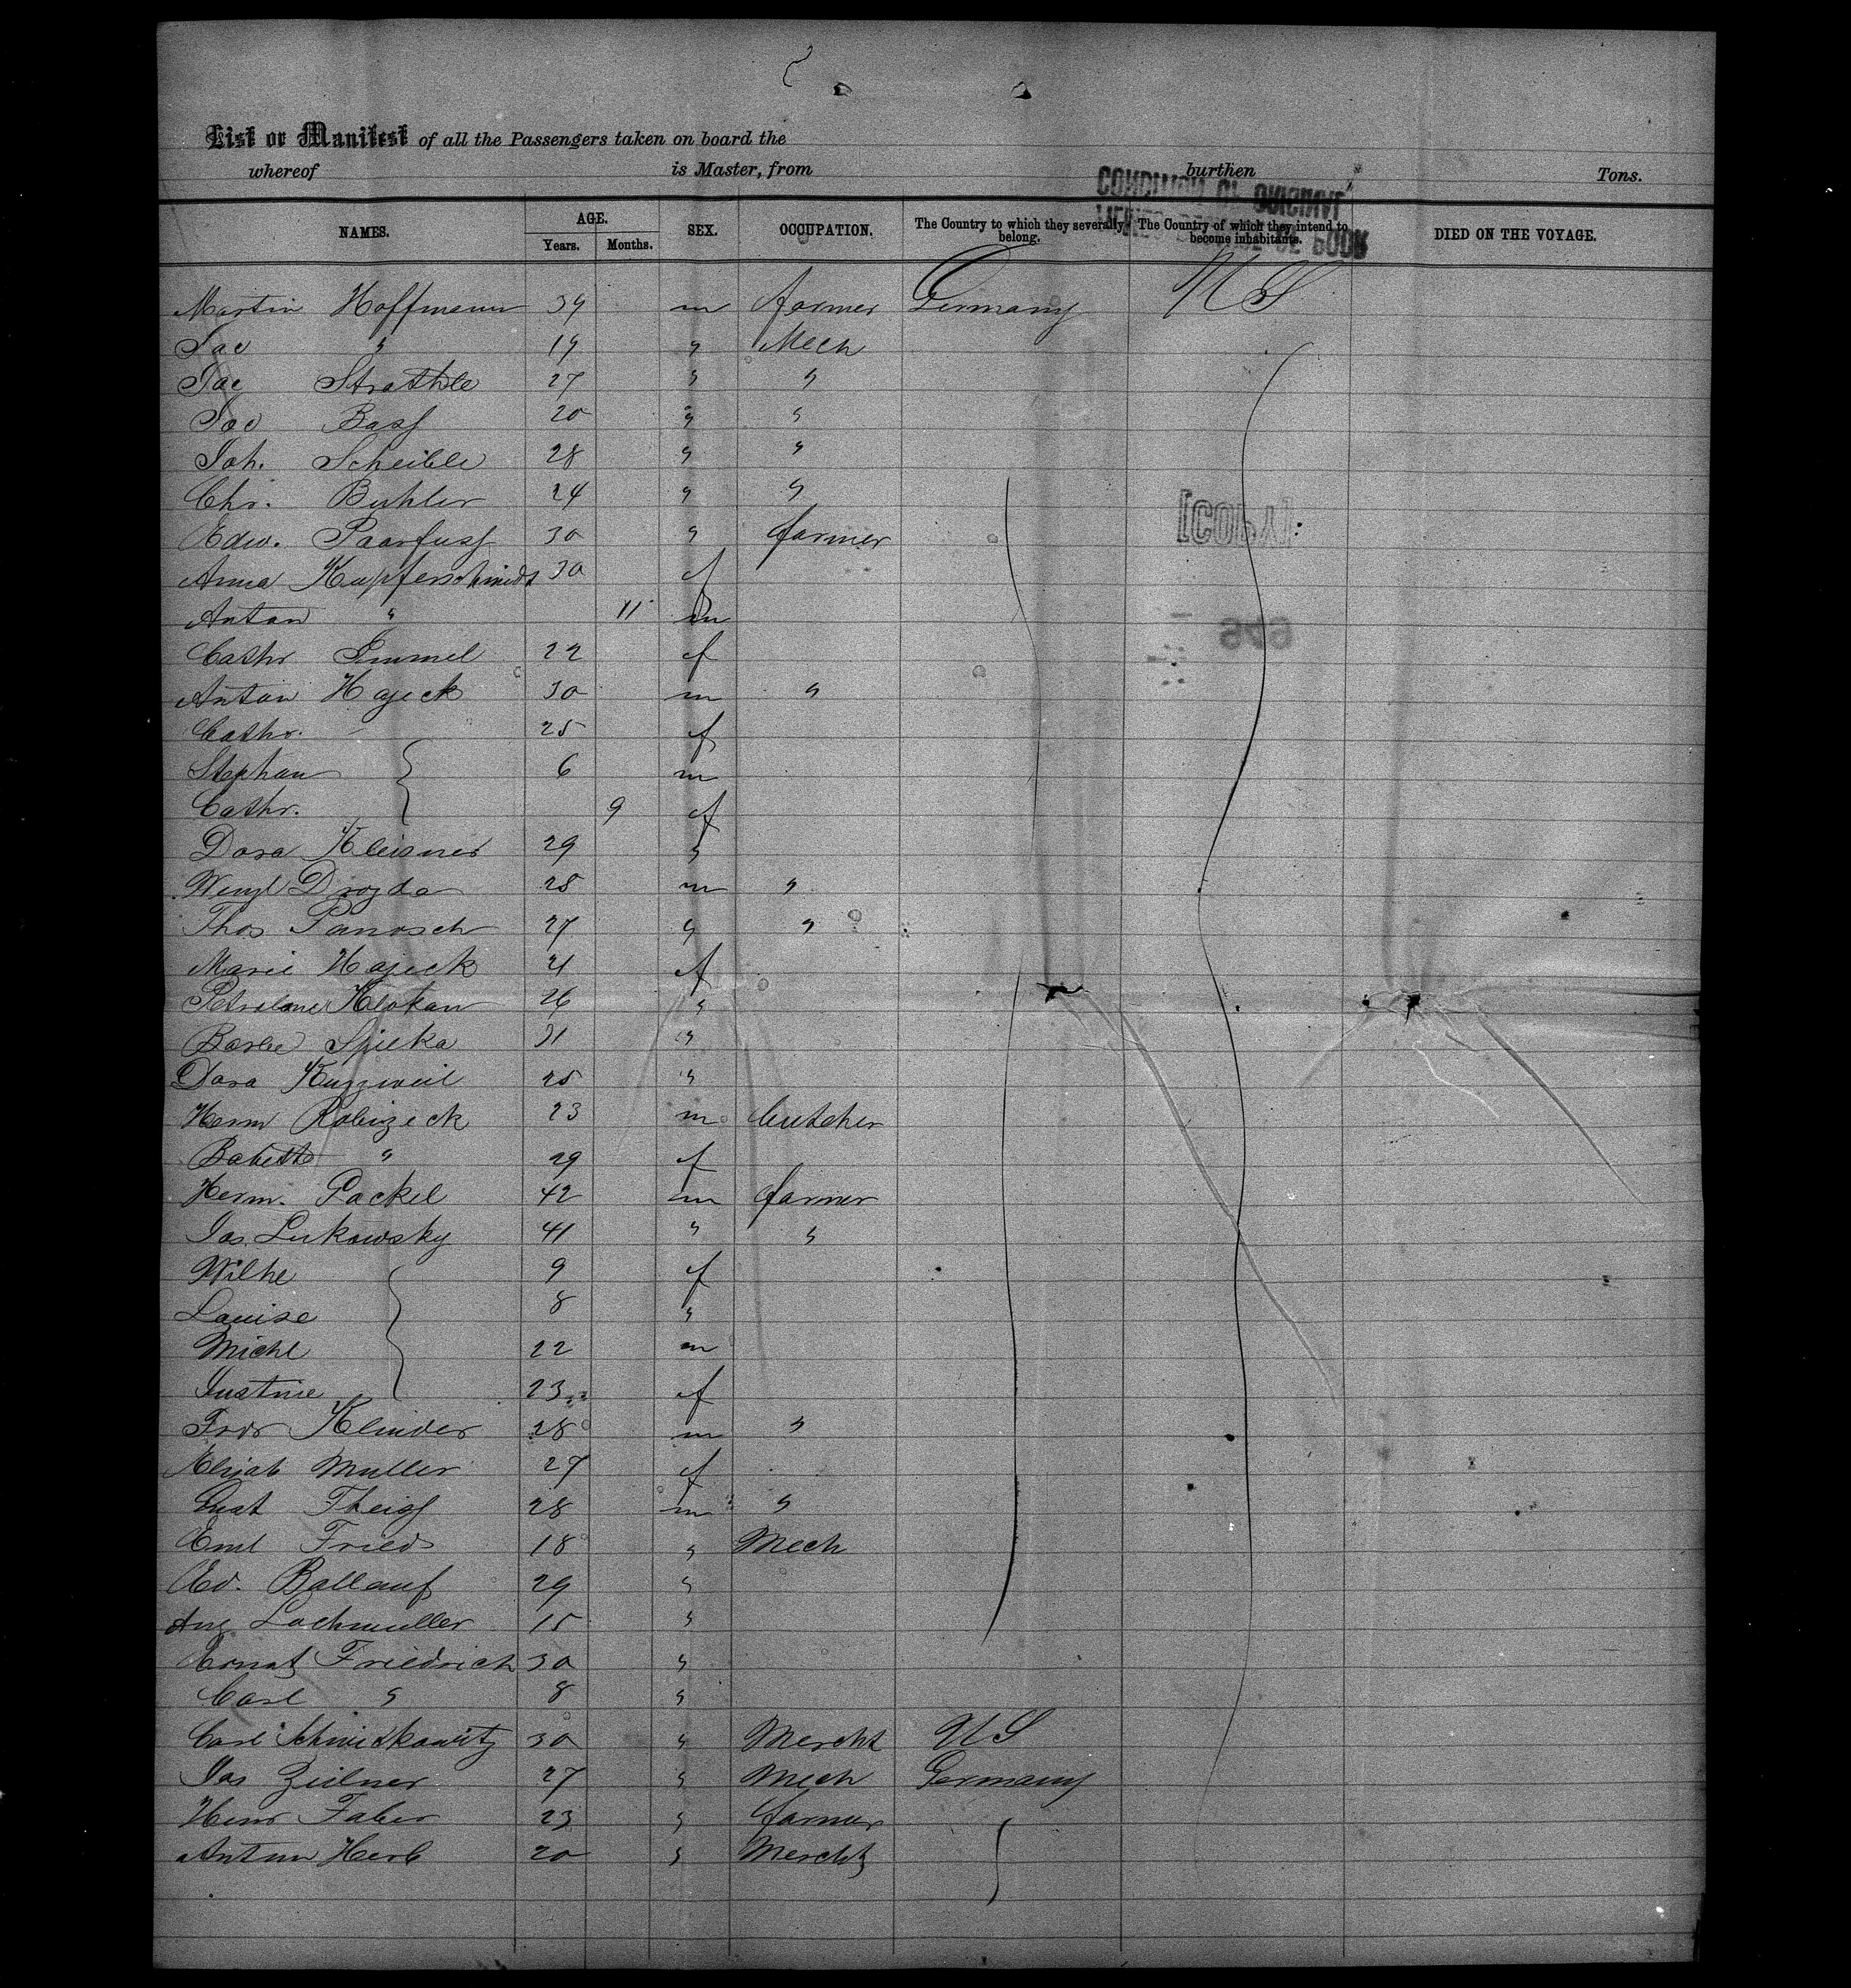 List or Manifest of all the Passengers taken on board the
whereof is Master, from burthen Tons.
NAMES. AGE. Years. Months. SEX. OCCUPATION. The Country to which they severally belong. The Country of which they intend to become inhabitants. DIED ON THE VOYAGE.
Martin Hoffmann 34 m farmer Germany U S
Jac " 19 " Mech
Jac Strathle 27 " "
Jac Bass 20 " "
Joh. Scheible 28 " "
Chr. Buhler 24 " "
Edw. Paarfuss 30 " farmer
Anna Kupferschmidt 30 f
Anton " 11 m
Cathr 22 f
Anton Hajeck 30 m "
Cathr. 25 f
Stephan 6 m
Cathr. 9 f
Dora Kleisner 29 "
Wenzl Drozda 28 m "
Thos Panosch 27 " "
Marie Hajeck 21 f
Klokan 26 "
Barbe Spicka 31 "
Dora Kuzzweil 25 "
Herm Robizeck 23 m butcher
Babette " 29 f
Herm. Packel 42 m farmer
Jos. Lukowsky 41 " "
Wilhe 9 f
Louise 8 "
Michl 22 m
Justine 23 f
Fror Klinder 28 m "
Elisab Muller 27 f
Gust Theiss 28 m "
Eml Fried 18 " Mech
Ed. Ballauf 29 "
Aug Lochmuller 15 "
Ernst Friedrich 30 "
Carl " 8 "
Carl 30 " Mercht U S
Jos Zeilner 27 " Mech Germany
Henr Faber 23 " farmer
Anton Herb 20 " Mercht
[COPY]